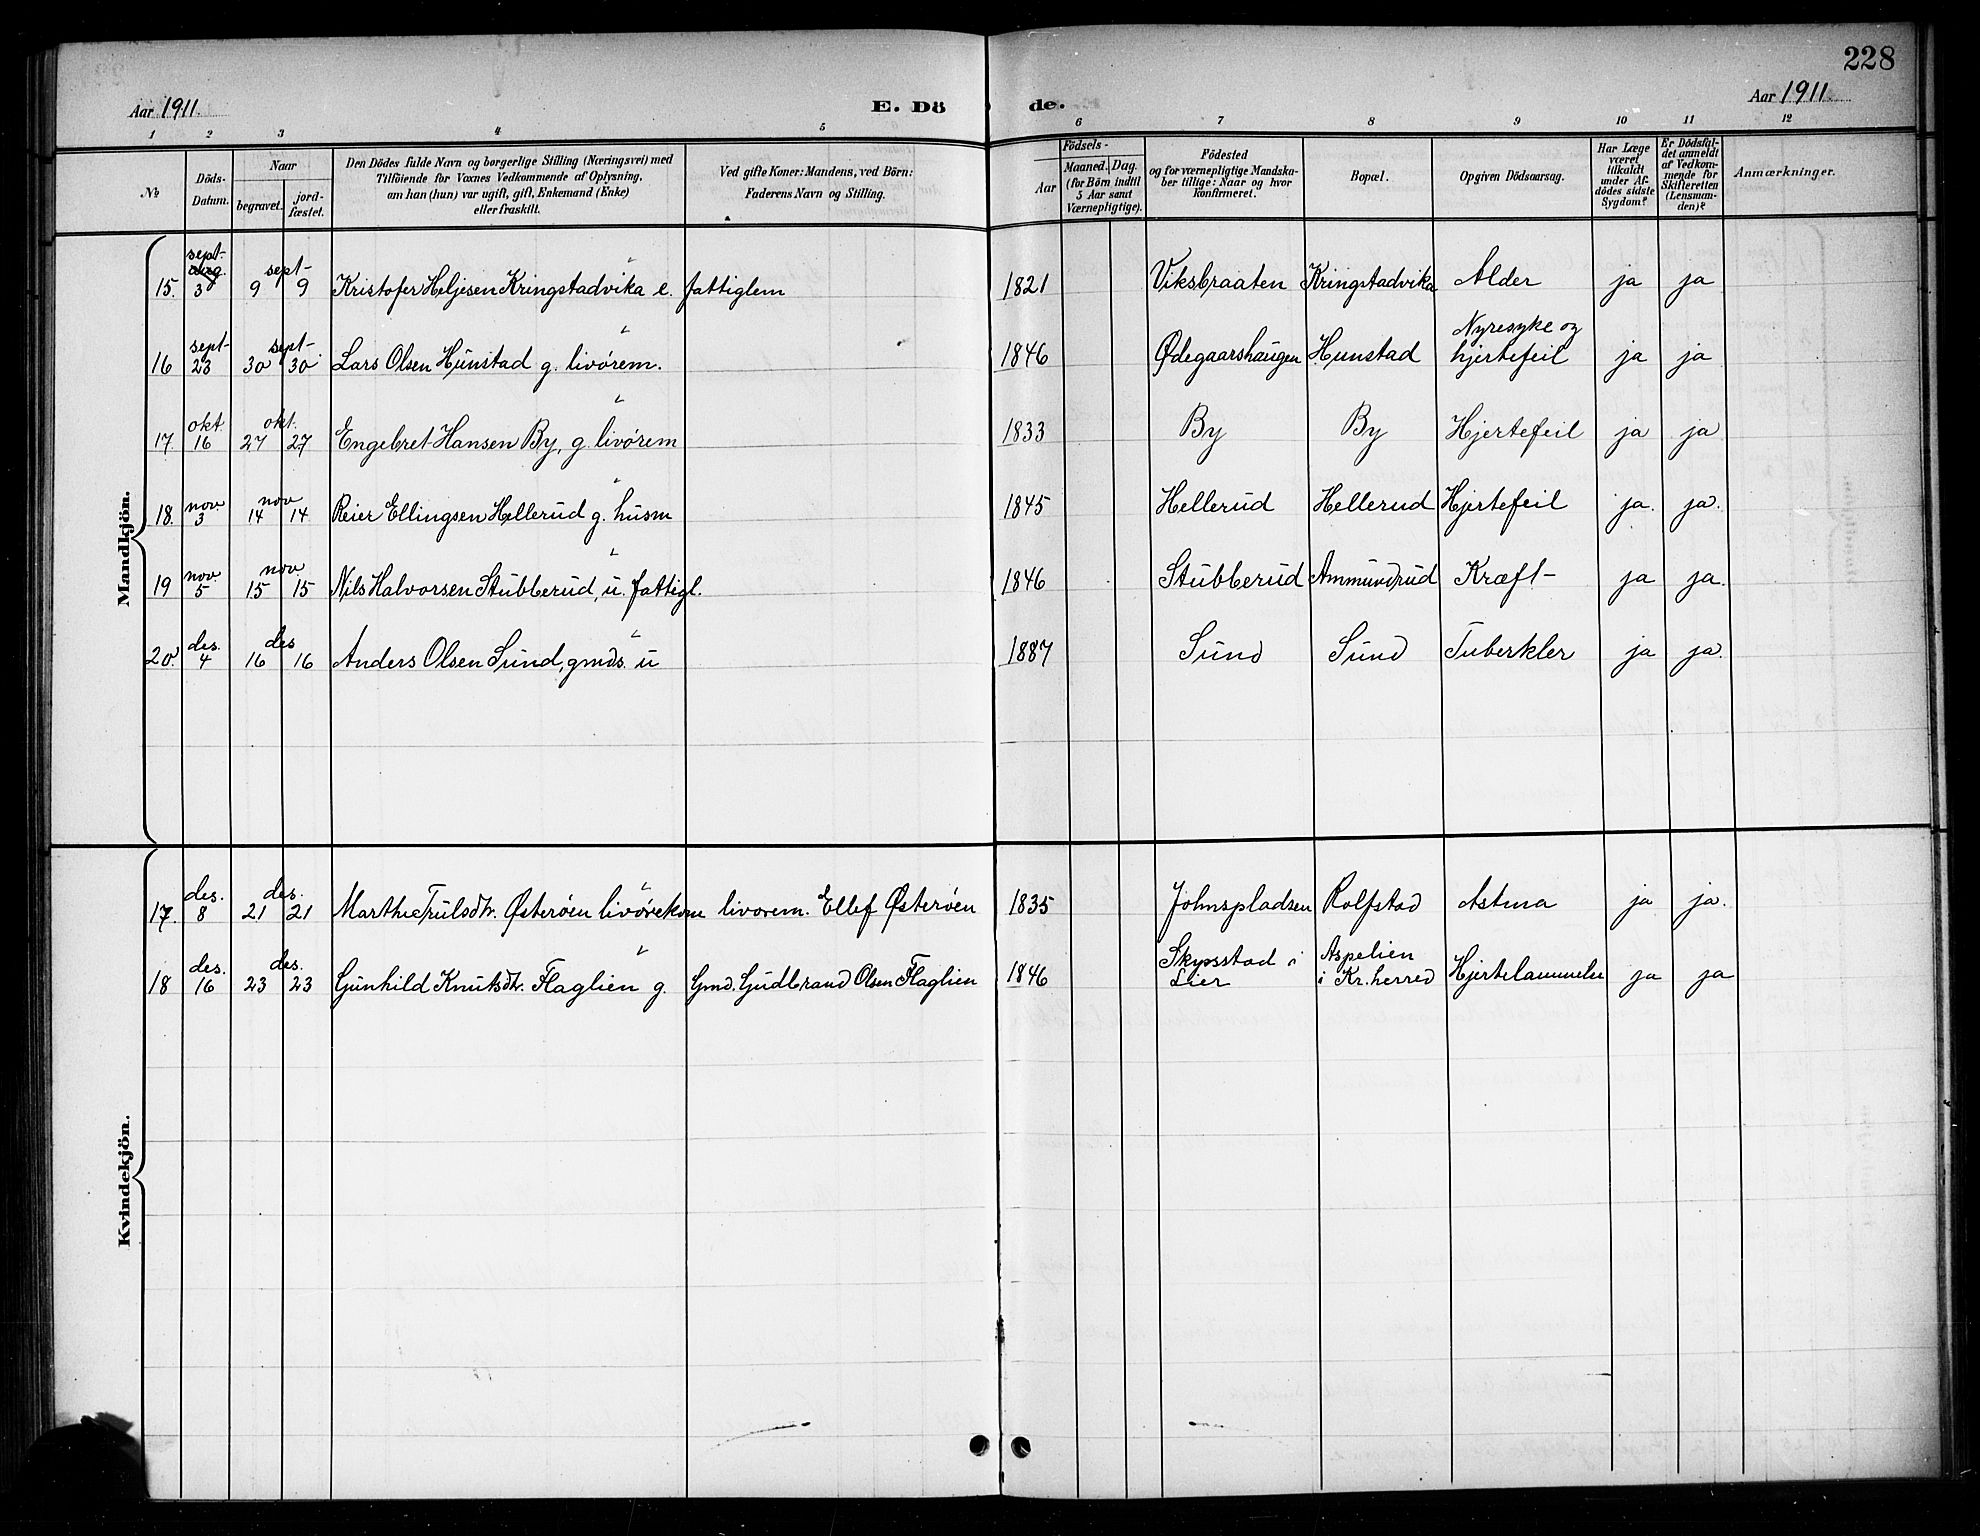 228
Aar 1911.
E. Dö
de.
Aar 1911.
1 2 3 4 5 6 7 8 9 10 11 12
№
Döds-
Datum.
Naar
begravet.
jord-
fæstet.
Den Dödes fulde Navn og borgerlige Stilling (Næringsvei) med
Tilföiende for Voxnes Vedkommende af Oplysning,
om han (hun) var ugift, gift, Enkemand (Enke)
eller fraskilt.
Ved gifte Koner: Mandens, ved Börn:
Faderens Navn og Stilling.
Födsels-
Aar
Maaned. Dag.
(for Börn indtil
5 Aar samt
Værnepligtige).
Födested
og for værnepligtige Mandska-
ber tillige: Naar og hvor
konfirmeret.
Bopæl.
Opgiven Dödsaarsag.
Har Læge
været
tilkaldt
under Af-
dödes sidste
Sygdom?
Er Dödsfal-
det anmeldt
af Vedkom-
mende for
Skifteretten
(Lensman-
den)?
Anmærkninger.
Mandkjön.
15. sept. aug. 3 9 sept 9 Kristofer Heljesen Kringstadvika e. fattiglem 1821 Viksbraaten Kringstadvika Alder ja ja
16 sept 23 30 sept 30 Lars Olsen Hunstad g. livörem. 1846 Ødegaarshaugen Hunstad Nyresyke og
hjertefeil ja ja
17. okt. 16 27 okt. 27 Engebret Hansen By, g. livörem 1833 By By Hjertefeil ja ja
18. nov 3 14 nov 14 Reier Ellingsen Hellerud g. husm 1845 Hellerud Hellerud Hjertefeil ja. ja.
19 nov. 5 15 nov 15 Nils Halvorsen Stubberud, u. fattigl. 1846 Stubberud Ammundrud Kræft ja ja.
20. des. 4 16 des 16 Anders Olsen Sund, gmds. u 1887 Sund Sund Tuberkler ja ja.
Kvindekjön.
17. des. 8 21 des. 21 Marthe Trulsdtr. Østeröen livörekone livorem. Ellef Østeröen 1835 Johnspladsen Rolfstad Astma ja ja.
18 des. 16 23 des. 23 Gunhild Knutsdtr. Flaglien g. Gmd. Gudbrand Olsen Flaglien 1846 Skypsstad i
Lier Aspelien
i Kr. herred Hjertelammelse ja ja